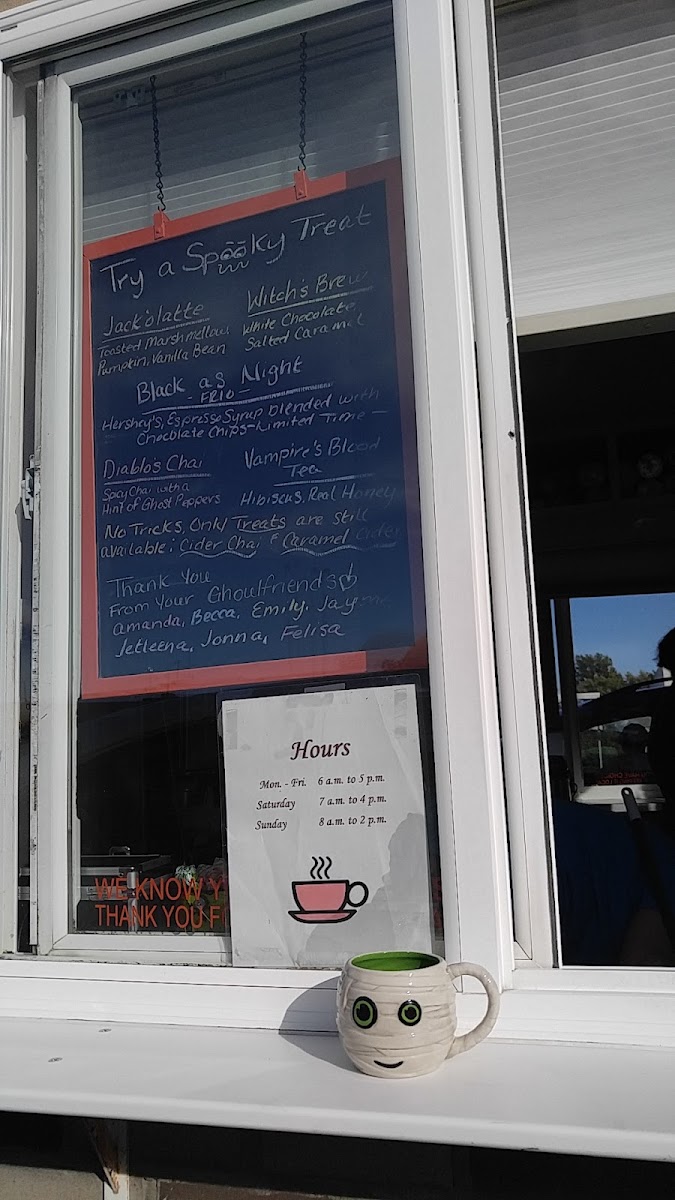 Try a Spooky Treat
Jack'olatte
Toasted Marshmellow
Pumpkin, Vanilla Bean
Witch's Brew
White Chocolate
Salted Caramel
Black as Night
- FRIO -
Hershey's, Espresso Syrup blended with
Chocolate Chips - Limited Time -
Diablo's Chai
Spicy Chai with a
Hint of Ghost Peppers
Vampire's Blood
Tea
Hibiscus, Real Honey
No Tricks, Only Treats are still
available: Cider Chai & Caramel Cider
Thank You
From Your Ghoulfriends
Amanda, Becca, Emily, Jayme
Jetleena, Jonna, Felisa
Hours
Mon. - Fri. 6 a.m. to 5 p.m.
Saturday 7 a.m. to 4 p.m.
Sunday 8 a.m. to 2 p.m.
WE KNOW Y
THANK YOU F